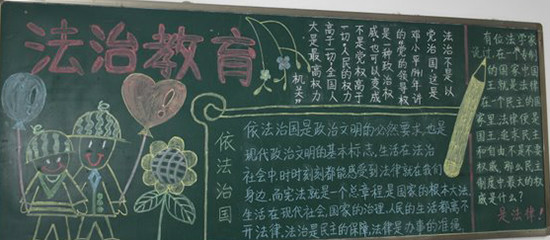 法治教育
法治不是以
党治国,这是
邓小平1941年讲
的党的领导权
是一种政治权
威,也可以变成
不是党权高于
一切,人民的权力
高于一切,全国人
大是最高权力
机关
依法治国
依法治国是政治文明的必然要求,也是
现代政治文明的基本标志,生活在法治
社会中,时时刻刻都能感受到法律就在我们
身边,而宪法就是一个总章程是国家的根本大法,
生活在现代社会,国家的治理,人民的生活都离不
开法律,法治是民主的保障,法律是办事的准绳
有位法学家
说过,在一个专制
的国家中国
王就是法律
在一个民主的国
家里,法律便是
国王,追求民主
和自由不是不要
权威,那么民主
制度中,最大的权
威是什么?
是法律!